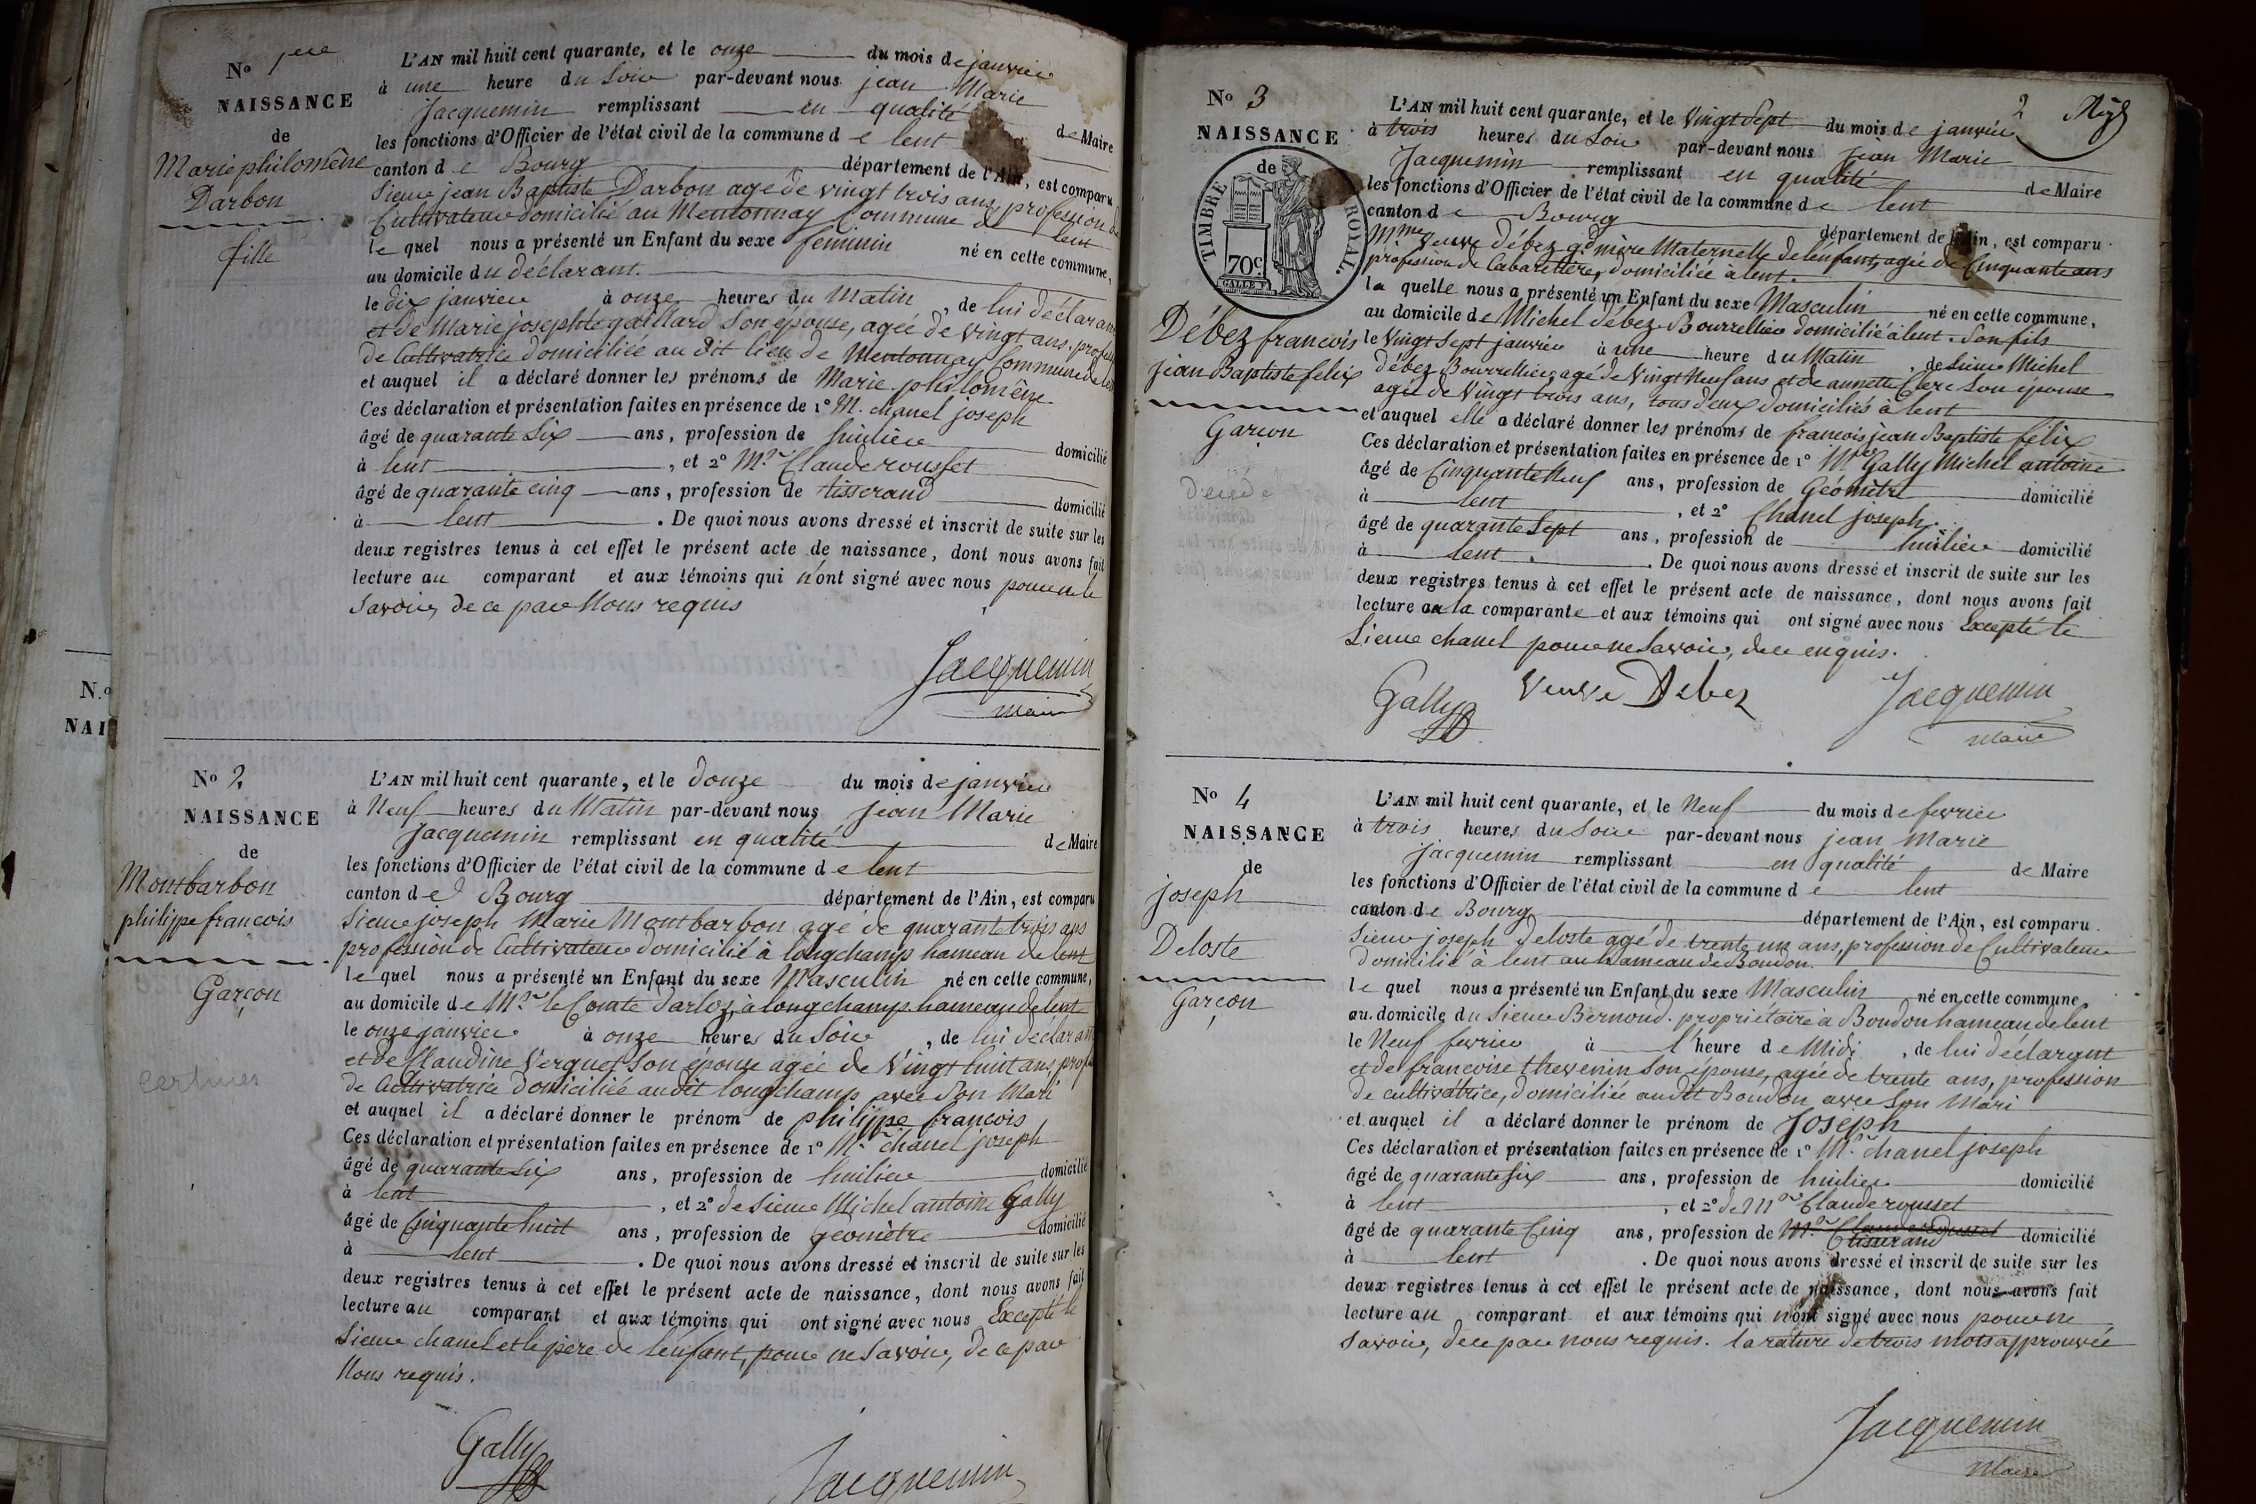 Nº 1ere
NAISSANCE
de
Marie philomène
Darbon
fille
L'AN mil huit cent quarante, et le onze du mois de janvier
à une heure du Soir par-devant nous jean Marie
Jacquemin remplissant en qualité de Maire
les fonctions d'Officier de l'état civil de la commune de lent
canton de Bourg département de l'Ain, est comparu
Sieur jean Baptiste Darbon agé de vingt trois ans, profession de
Cultivateur domicilié au Mentonnay Commune de lent
le quel nous a présenté un Enfant du sexe feminin né en cette commune,
au domicile du déclarant.
le dix janvier à onze heures du Matin, de lui déclarant
et de Marie josephte gaillard Son épouse, agée de vingt ans, profession
de Cultivatrice domiciliée au dit lieu de Mentonnay Commune de lent
et auquel il a déclaré donner les prénoms de Marie philomène
Ces déclaration et présentation faites en présence de 1º M. chanel joseph
âgé de quarante Six ans, profession de huilier domicilié
à lent, et 2º Mr Claude rousset
âgé de quarante cinq ans, profession de tisserand domicilié
à lent. De quoi nous avons dressé et inscrit de suite sur les
deux registres tenus à cet effet le présent acte de naissance, dont nous avons fait
lecture au comparant et aux témoins qui n'ont signé avec nous pour ne le
Savoir, de ce par Nous requis
Jacquemin
Maire
Nº 2
NAISSANCE
de
Montbarbon
philippe francois
Garçon
L'AN mil huit cent quarante, et le douze du mois de janvier
à Neuf heures du Matin par-devant nous jean Marie
Jacquemin remplissant en qualité de Maire
les fonctions d'Officier de l'état civil de la commune de lent
canton de Bourg département de l'Ain, est comparu
Sieur joseph Marie Montbarbon agé de quarante trois ans
profession de Cultivateur domicilié à longchamp hameau de lent
le quel nous a présenté un Enfant du sexe Masculin né en cette commune,
au domicile de Mr le Comte Darloz, à longchamp hameau de lent
le onze janvier à onze heures du Soir, de lui déclarant
et de Claudine Verguet Son épouse agée de Vingt huit ans, prof
de Cultivatrice Domiciliée audit longchamp avec Son Mari
et auquel il a déclaré donner le prénom de philippe francois
Ces déclaration et présentation faites en présence de 1º Mr chanel joseph
âgé de quarante Six ans, profession de huilier domicilié
à lent, et 2º de Sieur Michel antoine Gally
âgé de Cinquante huit ans, profession de Géomètre domicilié
à lent. De quoi nous avons dressé et inscrit de suite sur les
deux registres tenus à cet effet le présent acte de naissance, dont nous avons fait
lecture au comparant et aux témoins qui ont signé avec nous Excepté le
Sieur chanel et le père de l'enfant, pour ne Savoir, de ce par
Nous requis.
Gally
Jacquemin
Nº 3
NAISSANCE
de
TIMBRE ROYAL.
70c
Débez francois
jean Baptiste felix
Garcon
2
L'AN mil huit cent quarante, et le Vingt Sept du mois de janvier
à trois heures du Soir par-devant nous jean Marie
Jacquemin remplissant en qualité de Maire
les fonctions d'Officier de l'état civil de la commune de lent
canton de Bourg département de l'Ain, est comparu
Mme Veuve Débez gd mère Maternelle de l'enfant, agée de Cinquante ans
profession de Cabaretière, domiciliée à lent.
la quelle nous a présenté un Enfant du sexe Masculin né en cette commune,
au domicile de Michel Débez Bourrellier domicilié à lent. Son fils
le Vingt Sept janvier à une heure du Matin, de Sieur Michel
débez Bourrellier, agé de Vingt Neuf ans et de annette Clerc Son épouse
agée de Vingt trois ans, tous deux domiciliés à lent
et auquel elle a déclaré donner les prénoms de francois jean Baptiste félix
Ces déclaration et présentation faites en présence de 1º Mr Gally Michel antoine
âgé de Cinquante Neuf ans, profession de Géomètre domicilié
à lent, et 2º Chanel joseph
âgé de quarante Sept ans, profession de huilier domicilié
à lent. De quoi nous avons dressé et inscrit de suite sur les
deux registres tenus à cet effet le présent acte de naissance, dont nous avons fait
lecture a la comparante et aux témoins qui ont signé avec nous Excepté le
Sieur chanel pour ne Savoir, de ce enquis.
Gally Veuve Debez Jacquemin
Maire
Nº 4
NAISSANCE
de
joseph
Deloste
Garçon
L'AN mil huit cent quarante, et le Neuf du mois de fevrier
à trois heures du Soir par-devant nous jean Marie
jacquemin remplissant en qualité de Maire
les fonctions d'Officier de l'état civil de la commune de lent
canton de Bourg département de l'Ain, est comparu
Sieur joseph Deloste agé de trente un ans, profession de Cultivateur
Domicilié à lent au hameau de Boudon.
le quel nous a présenté un Enfant du sexe Masculin né en cette commune,
au domicile du Sieur Bernoud, propriétaire à Boudon hameau de lent
le Neuf fevrier à l'heure de Midi, de lui déclarant
et de francoise thevenin Son épouse, agée de trente ans, profession
de cultivatrice, domiciliée audit Boudon avec Son Mari
et auquel il a déclaré donner le prénom de Joseph
Ces déclaration et présentation faites en présence de 1º Mr chanel joseph
âgé de quarante Six ans, profession de huilier domicilié
à lent, et 2º de Mr Claude rousset
âgé de quarante Cinq ans, profession de Mr Claude rousset tisserand domicilié
à lent. De quoi nous avons dressé et inscrit de suite sur les
deux registres tenus à cet effet le présent acte de naissance, dont nous avons fait
lecture au comparant et aux témoins qui n'ont signé avec nous pour ne
Savoir, de ce par nous requis. la rature de trois mots approuvée
Jacquemin
Maire